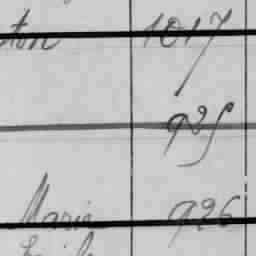 ton 1017
925
Marie 926